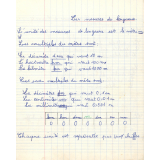 Les mesures de longueur
L'unité des mesures de longueur est le mètre
Les multiples du mètre sont
Le décamètre dam qui vaut 10 m
L'hectomètre hm qui vaut 100 m
Le kilomètre km qui vaut 1000 m
Les sous multiples du mètre sont
Le décimètre dm qui vaut 0,1 m
Le centimètre cm qui vaut 0,01 m
Le millimètre mm qui vaut 0,001 m
km hm dam m dm cm mm
0 0 0 0 0 0 0
Chaque unité est représentée par un seul chiffre